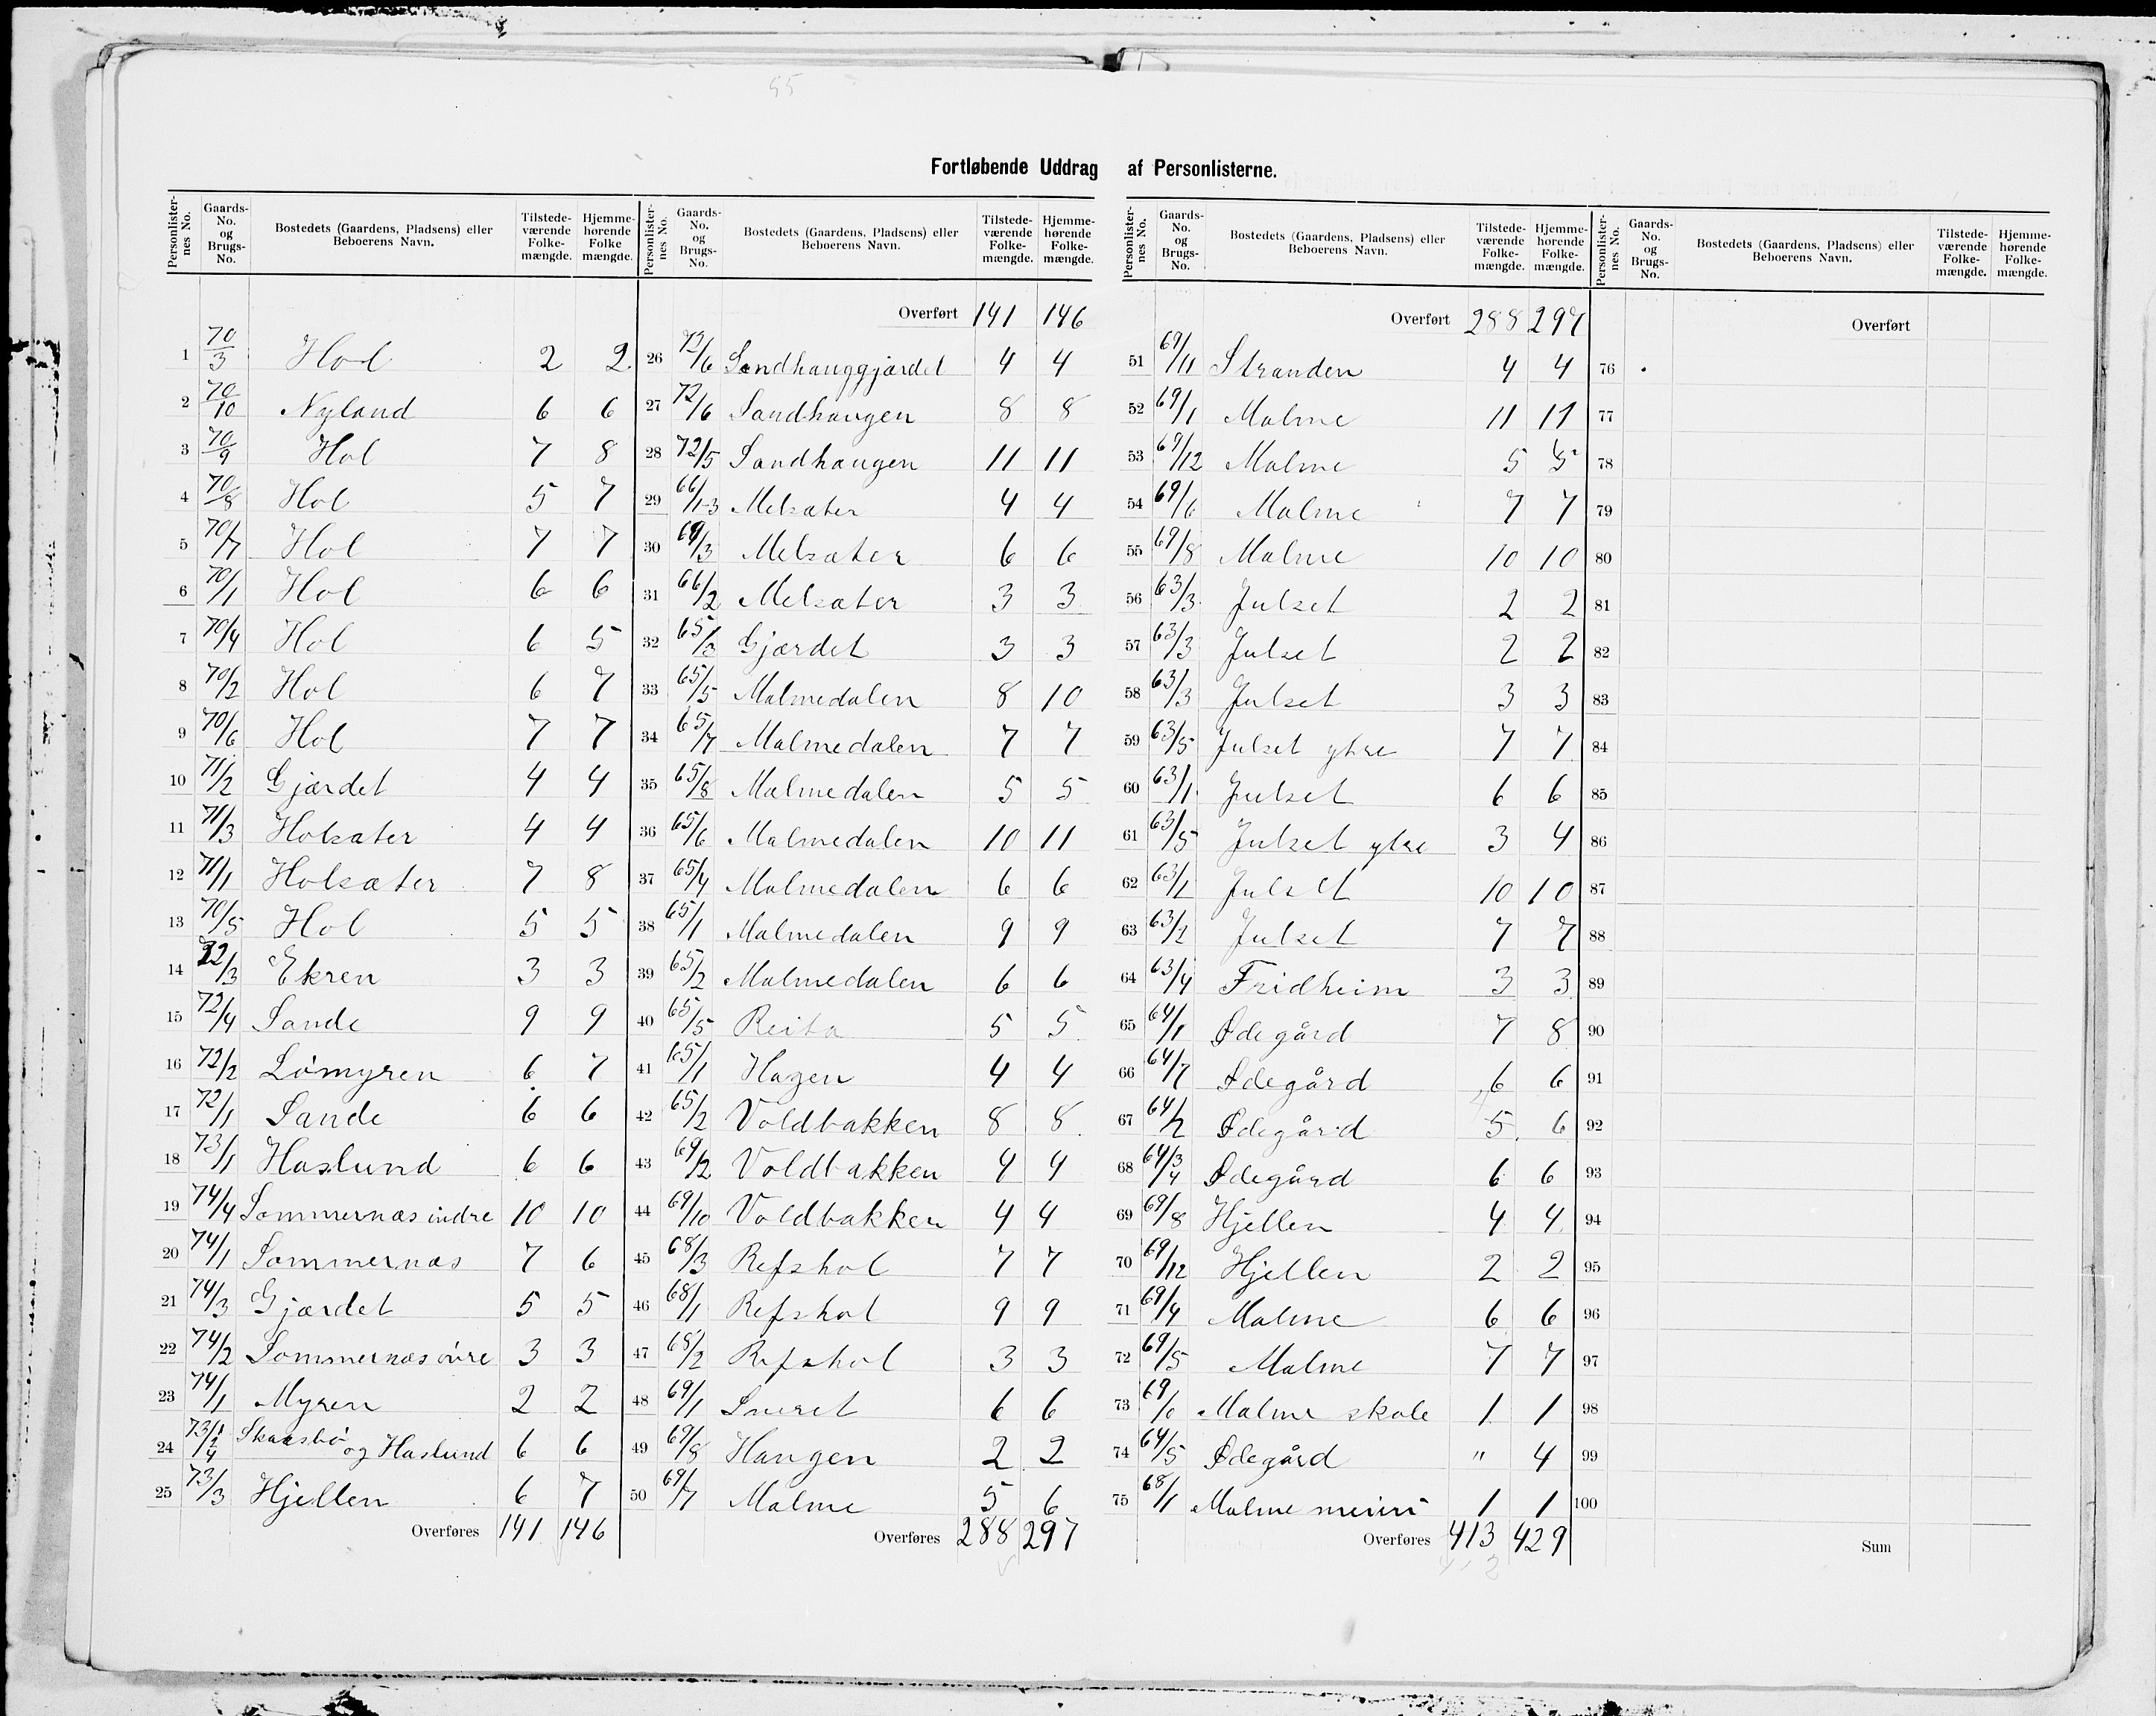 55
Fortløbende Uddrag af Personlisterne.
Personlister-nes No. | Gaards-No. og Brugs-No. | Bostedets (Gaardens, Pladsens) eller Beboerens Navn. | Tilstede-værende Folke-mængde. | Hjemme-hørende Folke mængde.
1 70/3 Hol 2 2
2 70/10 Nyland 6 6
3 70/9 Hol 7 8
4 70/8 Hol 5 7
5 70/7 Hol 7 7
6 70/1 Hol 6 6
7 70/4 Hol 6 5
8 70/2 Hol 6 7
9 70/6 Hol 7 7
10 71/2 Gjærdet 4 4
11 71/3 Holsæter 4 4
12 71/1 Holsæter 7 8
13 70/5 Hol 5 5
14 72/3 Ekren 3 3
15 72/4 Sande 9 9
16 72/2 Lömyren 6 7
17 72/1 Sande 6 6
18 73/1 Haslund 6 6
19 74/4 Sommernæs indre 10 10
20 74/1 Sommernæs 7 6
21 74/3 Gjærdet 5 5
22 74/2 Sommernæs øvre 3 3
23 74/1 Myren 2 2
24 73/1 2 4 Skaasbö og Haslund 6 6
25 73/3 Hjellen 6 7
Overføres 141 146
Personlister-nes No. | Gaards-No. og Brugs-No. | Bostedets (Gaardens, Pladsens) eller Beboerens Navn. | Tilstede-værende Folke-mængde. | Hjemme-hørende Folke-mængde.
Overført 141 146
26 72/6 Sandhauggjærdet 4 4
27 72/6 Sandhaugen 8 8
28 72/5 Sandhaugen 11 11
29 66/1-3 Melsæter 4 4
30 69/3 Melsæter 6 6
31 66/2 Melsæter 3 3
32 65/3 Gjærdet 3 3
33 65/5 Malmedalen 8 10
34 65/7 Malmedalen 7 7
35 65/8 Malmedalen 5 5
36 65/6 Malmedalen 10 11
37 65/4 Malmedalen 6 6
38 65/1 Malmedalen 9 9
39 65/2 Malmedalen 6 6
40 65/5 Reita 5 5
41 65/1 Hagen 4 4
42 65/2 Voldbakken 8 8
43 69/2 Voldbakken 4 4
44 69/10 Voldbakken 4 4
45 68/3 Refshol 7 7
46 68/1 Refshol 9 9
47 68/2 Refshol 3 3
48 69/1 6 6
49 69/8 Haugen 2 2
50 69/7 Malme 5 6
Overføres 288 297
Personlister-nes No. | Gaards-No. og Brugs-No. | Bostedets (Gaardens, Pladsens) eller Beboerens Navn. | Tilstede-værende Folke-mængde. | Hjemme-hørende Folke-mængde.
Overført 288 297
51 69/11 Stranden 4 4
52 69/1 Malme 11 11
53 69/12 Malme 5 5
54 69/6 Malme 7 7
55 69/8 Malme 10 10
56 63/3 Julset 2 2
57 63/3 Julset 2 2
58 63/3 Julset 3 3
59 63/5 Julset ytre 7 7
60 63/1 Julset 6 6
61 63/5 Julset ytre 3 4
62 63/1 Julset 10 10
63 63/2 Julset 7 7
64 63/4 Fridheim 3 3
65 64/1 Ødegård 7 8
66 64/7 Ødegård 6 6
67 64/2 Ødegård 5 6
68 64/3 4 Ødegård 6 6
69 69/8 Hjellen 4 4
70 69/12 Hjellen 2 2
71 69/4 Malme 6 6
72 69/5 Malme 7 7
73 69/0 Malme skole 1 1
74 64/5 Ødegård " 4
75 68/1 Malme 1 1
Overføres 413 429
Personlister-nes No. | Gaards-No. og Brugs-No. | Bostedets (Gaardens, Pladsens) eller Beboerens Navn. | Tilstede-værende Folke-mængde. | Hjemme-hørende Folke-mængde.
Overført
76
77
78
79
80
81
82
83
84
85
86
87
88
89
90
91
92
93
94
95
96
97
98
99
100
Sum